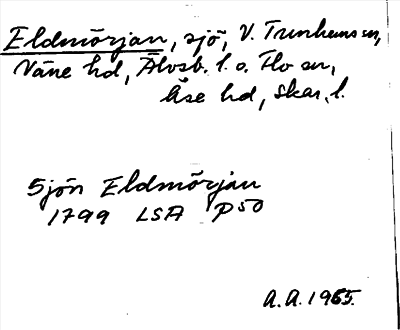 Eldmörjan, sjö, V. Tunhems sn,
Väne hd, Älvsb. l. o. Flo sn,
Åse hd, Skar. l.
Sjön Eldmörjan
1799 LSA P50
A.A. 1965.